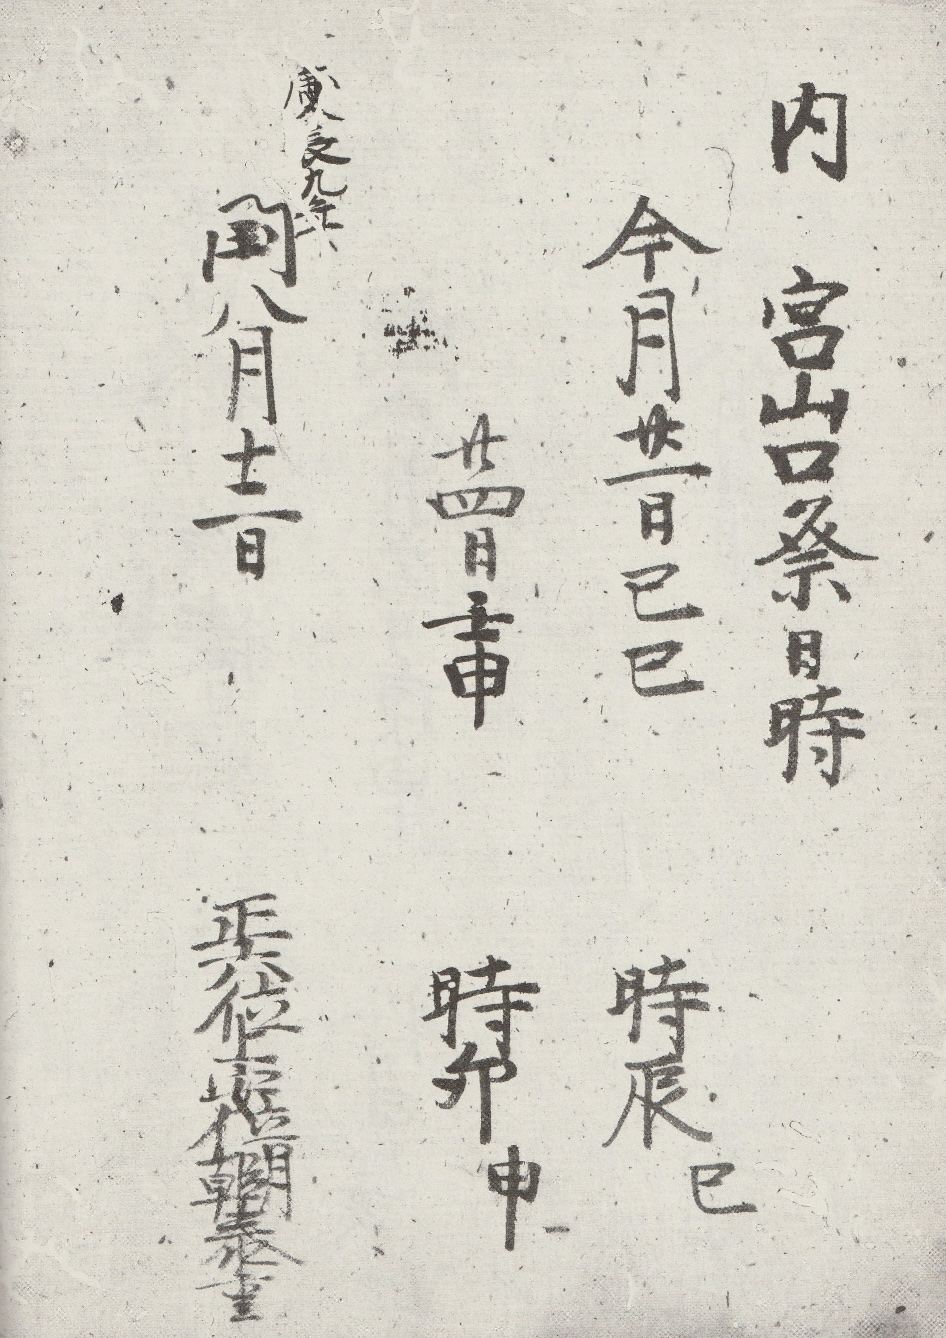 内宮山口祭日時
今月廿一日己巳 時辰 巳
廿四日壬申 時卯 申
慶長九年
閏八月十二日 正六位安倍朝臣泰重